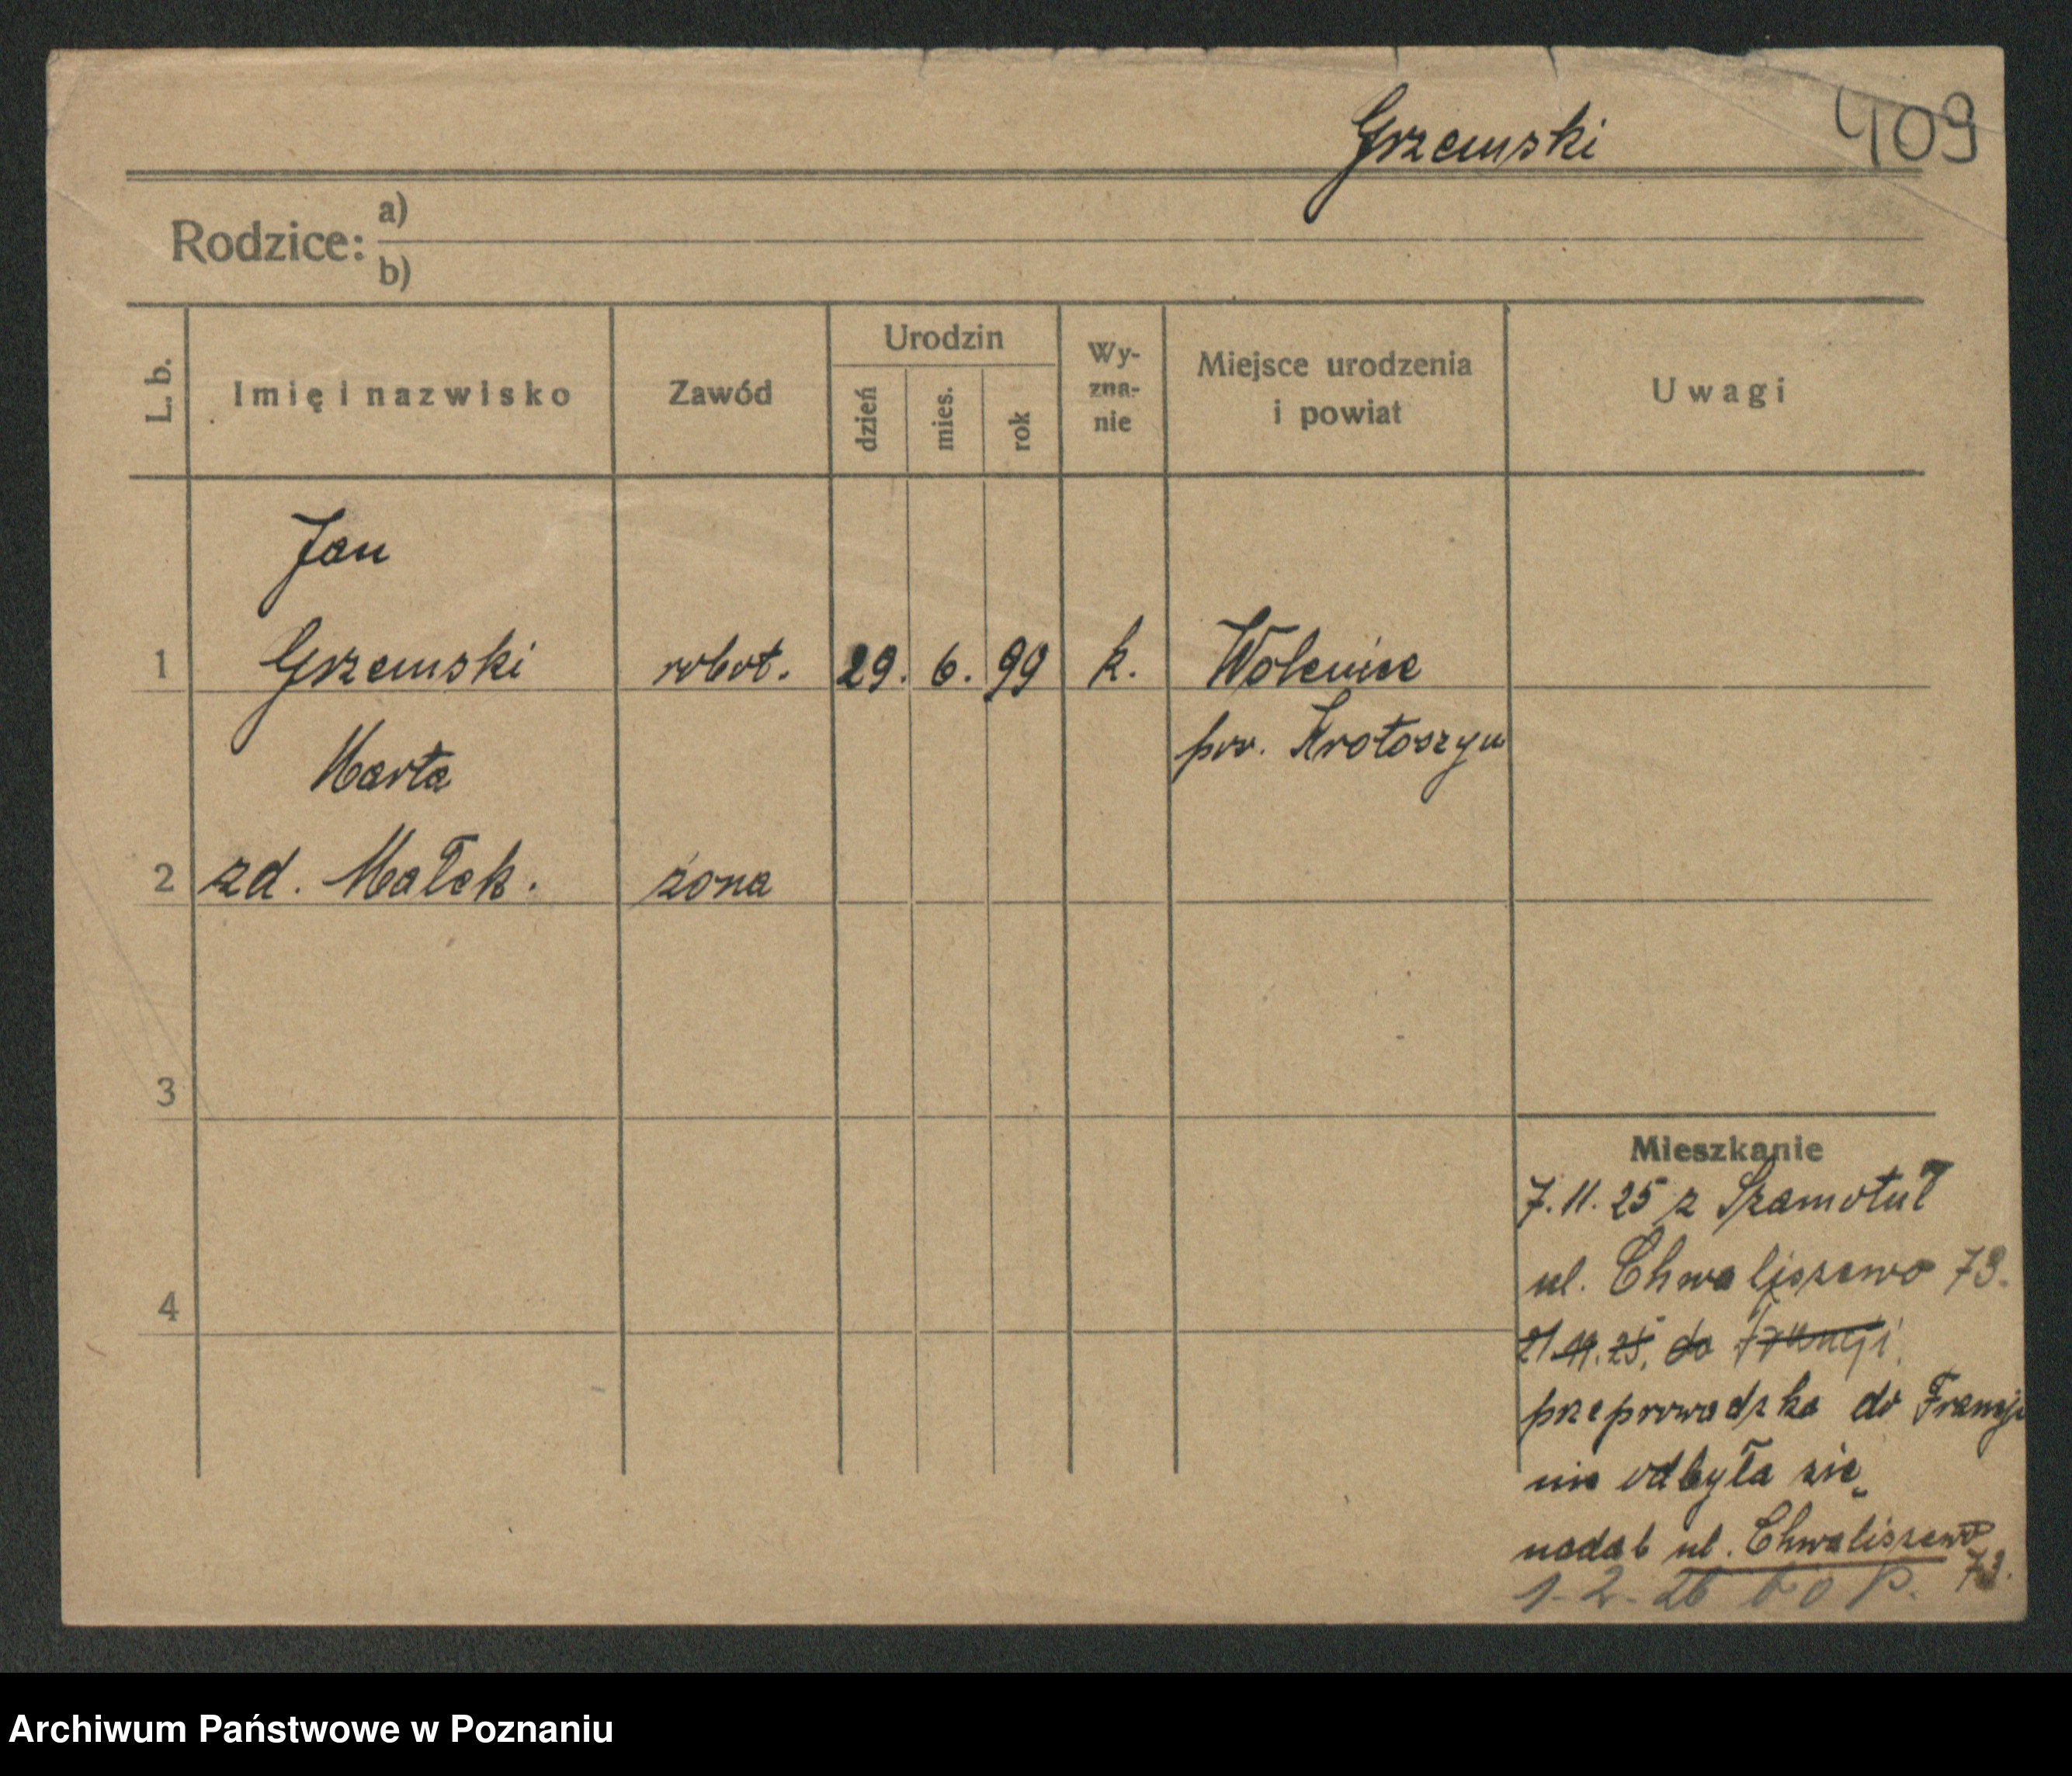 Grzemski 409
Rodzice: a)
b)
L. b. Imię i nazwisko Zawód Urodzin dzień mies. rok Wy-zna-nie Miejsce urodzenia i powiat Uwagi
Jan
1 Grzemski robot. 29. 6. 99 k.
pow. Krotoszyn
Marta
2 zd. Małek. żona
3
Mieszkanie
7.11.25 z Szamotuł
ul. Chwaliszewo 73.
4
21.11.25, do Francji.
przeprowadzka do Francji
nie odbyła się
nadal ul. Chwaliszewo
73.
1.2.26
Archiwum Państwowe w Poznaniu